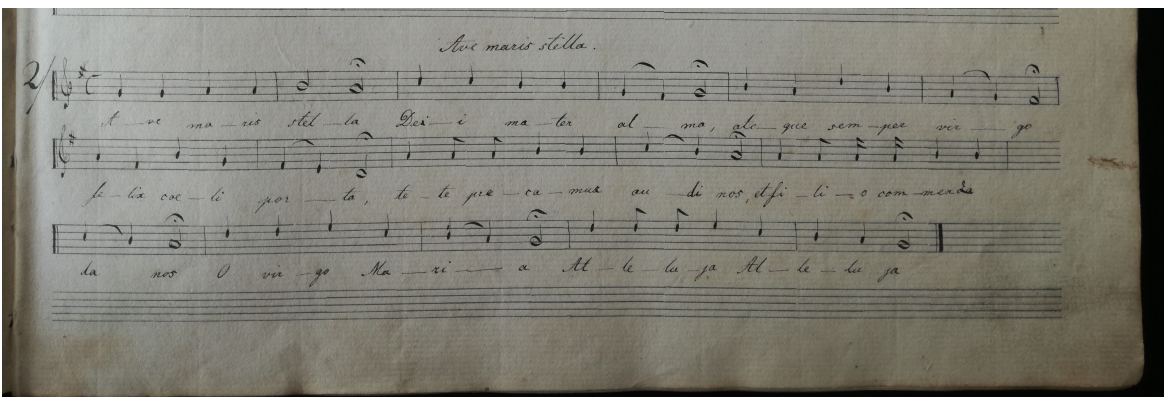 Ave maris stella.
2/
A — ve ma — ris stel — la Dei — i ma — ter al — ma, at — que sem — per vir — go
fe — lix coe — li por — ta, te — te pre — ca — mus au — di nos, et fi — li — o com — men
da nos O vir — go Ma — ri — a Al — le — lu — ja Al — le — lu — ja